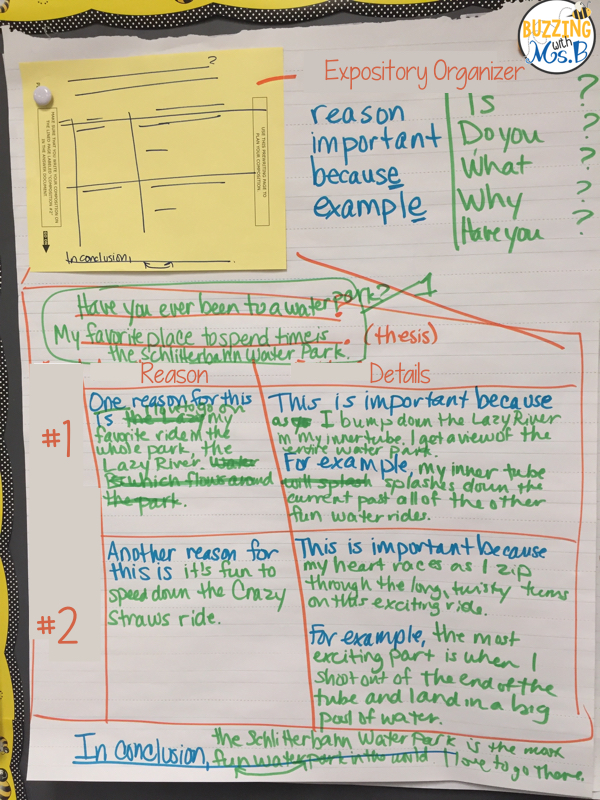 BUZZING
with
Ms. B
Expository Organizer
reason
important
because
example
Is ?
Do you ?
What ?
Why ?
Have you ?
?
MAKE SURE THAT YOU WRITE YOUR COMPOSITION ON
THE LINED PAGE LABELED "COMPOSITION #2"
IN THE ANSWER DOCUMENT.
USE THIS PREWRITING PAGE TO
PLAN YOUR COMPOSITION
In conclusion,
Have you ever been to a water park? 1
My favorite place to spend time is (thesis)
the Schlitterbahn Water Park.
Reason
Details
#1
One reason for this
is the Lazy I like to go on my
favorite ride in the
whole park, the
Lazy River. Water
Rs which flows around
the park.
This is important because
as I bump down the Lazy River
in my inner tube, I get a view of the
entire water park.
For example, my inner tube
will splash splashes down the
current past all of the other
fun water rides.
#2
Another reason for
this is it's fun to
speed down the Crazy
Straws ride.
This is important because
my heart races as I zip
through the long, twisty turns
on this exciting ride.
For example, the most
exciting part is when I
shoot out of the end of the
tube and land in a big
pool of water.
In conclusion, the Schlitterbahn Water Park is the most
fun water park in the world. I love to go there.